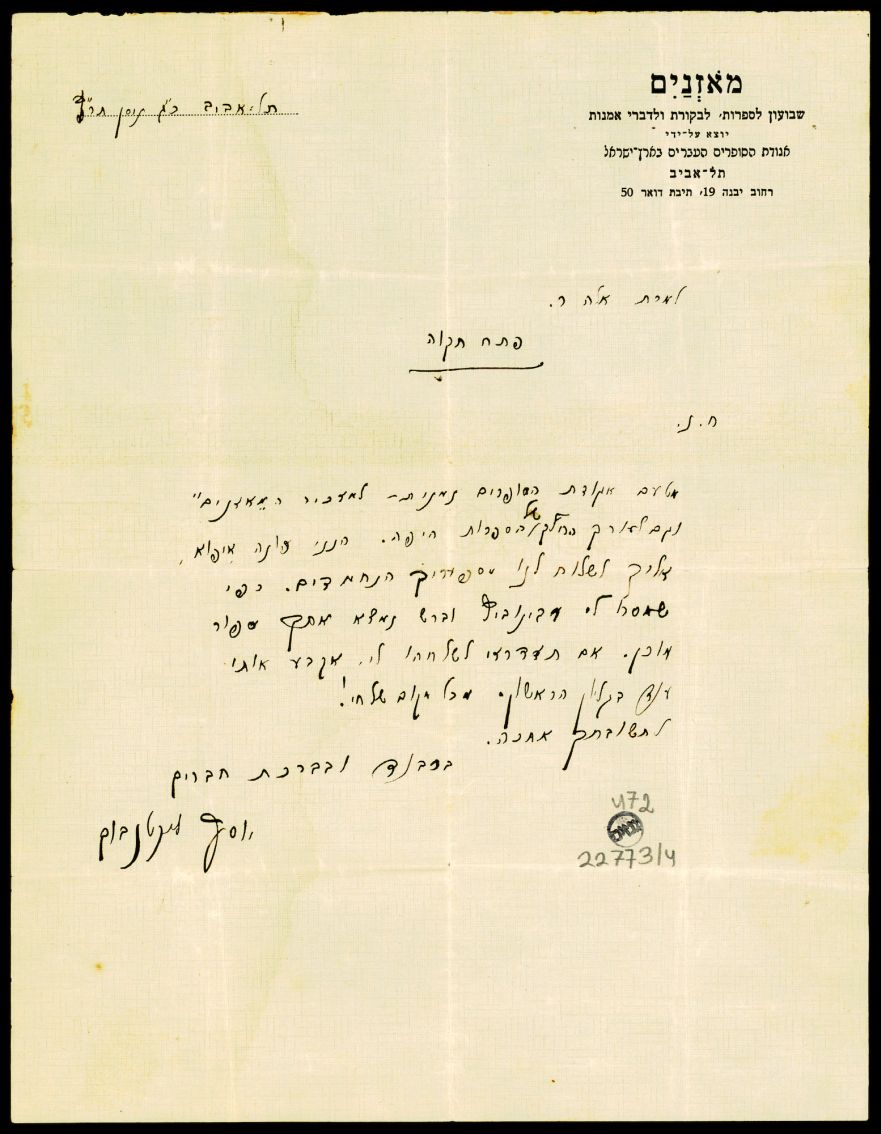 מֹאזְנַיִם
שבועון לספרות, לבקורת ולדברי אמנות
יוצא על־ידי
אגודת הסופרים העברים בארץ־ישראל
תל־אביב
רחוב יבנה 19, תיבת דואר 50
תל־אביב כ"ג ניסן
למרת אלה ר.
פתח תקוה
ח. נ.
מטעם אגודת הסופרים נמניתי למזכיר ה"מאזנים"
וגם לעורך החלק של הספרות היפה. הנני פונה איפוא
אליך לשלוח לנו מספוריך הנחמדים. כפי
שמסרו לי רבינוביץ וברש נמצא אתך ספור
מוכן. אם תזדרזי לשלחהו לי, אקבע אותו
עוד בגליון הראשון. מכל מקום שלחי!
לתשובתך אחכה.
בכבוד ובברכת חברים
יוסף ליכטנבום
472
22773/4